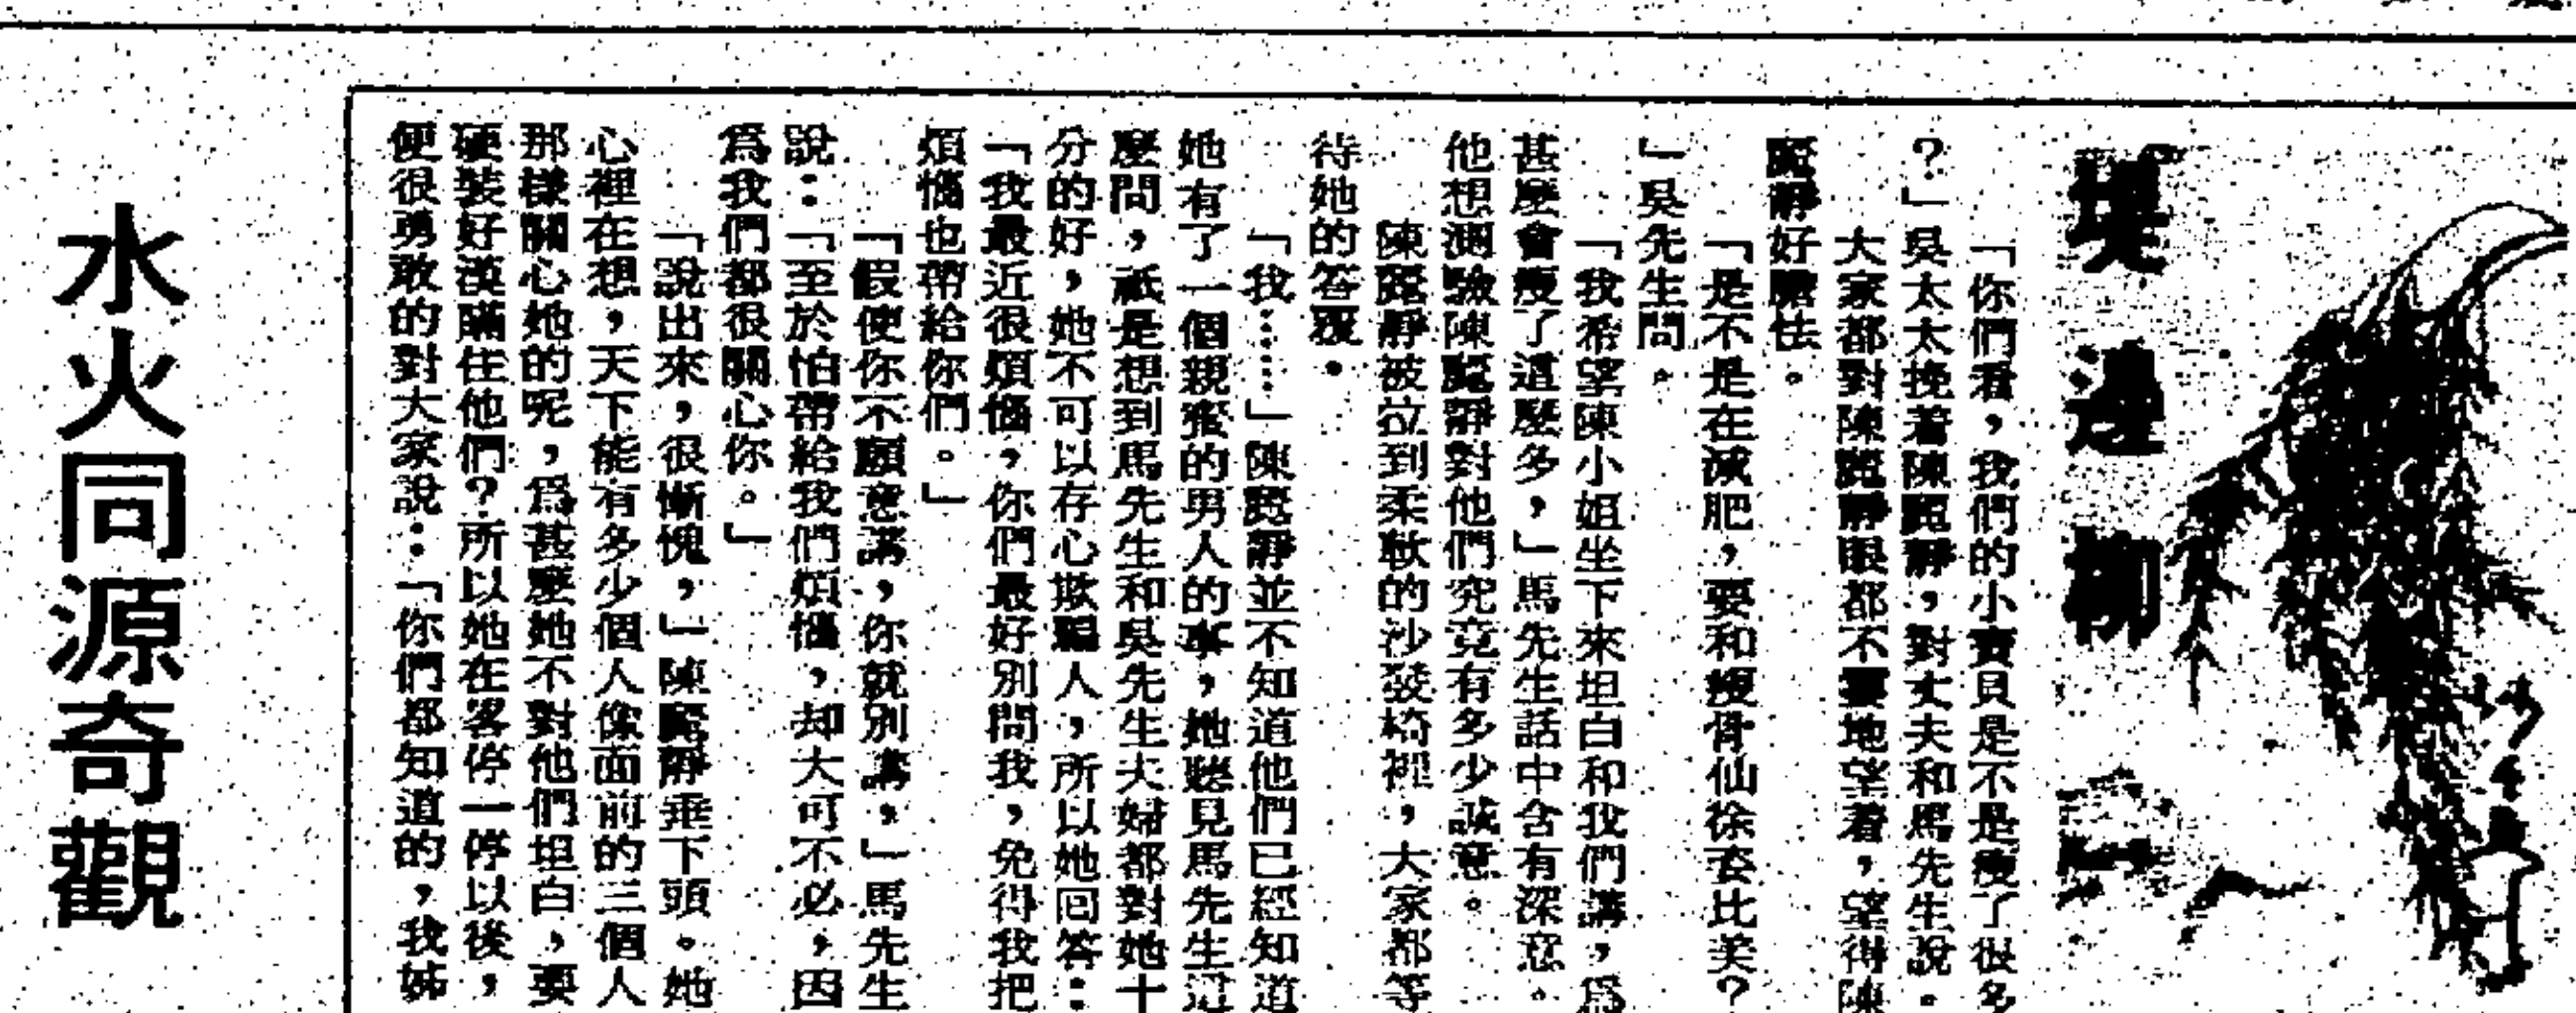 堤邊柳
「你們看，我們的小寶貝是不是瘦了很多
？」吳太太挽着陳麗靜，對丈夫和馬先生說。
大家都對陳麗靜眼都不霎地望着，望得陳
麗靜好膽怯。
「是不是在減肥，要和瘦骨仙徐姿比美？
」吳先生問。
「我希望陳小姐坐下來坦白和我們講，爲
甚麼會瘦了這麼多，」馬先生話中含有深意。
他想測驗陳麗靜對他們究竟有多少誠意。
陳麗靜被拉到柔軟的沙發椅裡，大家都等
待她的答覆。
「我……」陳麗靜並不知道他們已經知道
她有了一個親蜜的男人的事，她聽見馬先生這
麼問，祇是想到馬先生和吳先生夫婦都對她十
分的好，她不可以存心欺騙人，所以她回答：
「我最近很煩惱，你們最好別問我，免得我把
煩惱也帶給你們。」
「假使你不願意講，你就別講，」馬先生
說：「至於怕帶給我們煩惱，却大可不必，因
爲我們都很關心你。」
「說出來，很慚愧，」陳麗靜垂下頭。她
心裡在想，天下能有多少個人像面前的三個人
那樣關心她的呢，爲甚麼她不對他們坦白，要
硬裝好漢瞞住他們？所以她在客停一停以後，
便很勇敢的對大家說：「你們都知道的，我姊
水火同源奇觀